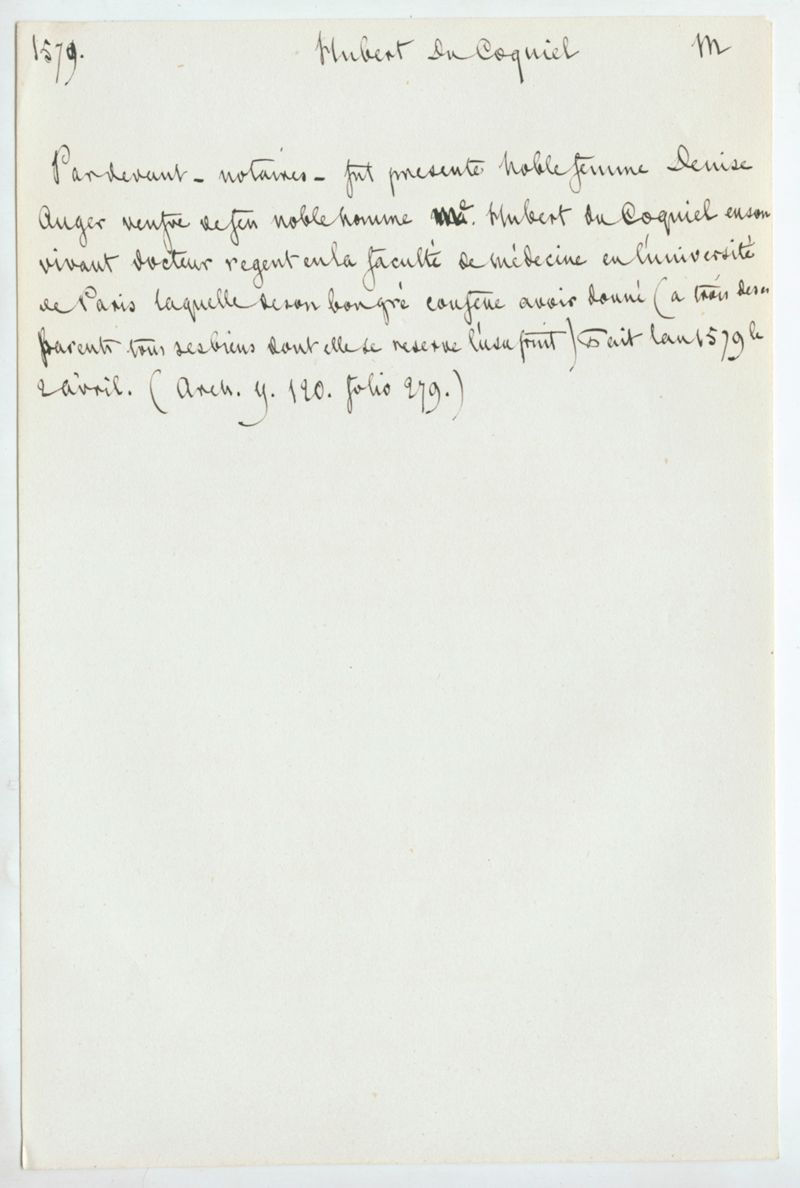 1579. Hubert Du Coquiel M
Pardevant - notaires - fut presente Noble femme Denise
Auger veufve de feu noble homme Me. Hubert du Coquiel en son
vivant docteur regent en la faculté de Médecine en l'université
de Paris laquelle de son bon gré confesse avoir donné (a trois de ses
parents tous ses biens dont elle se reserve l'usufruit) Fait lan 1579 le
2 avril. (Arch. y. 120. folio 279.)